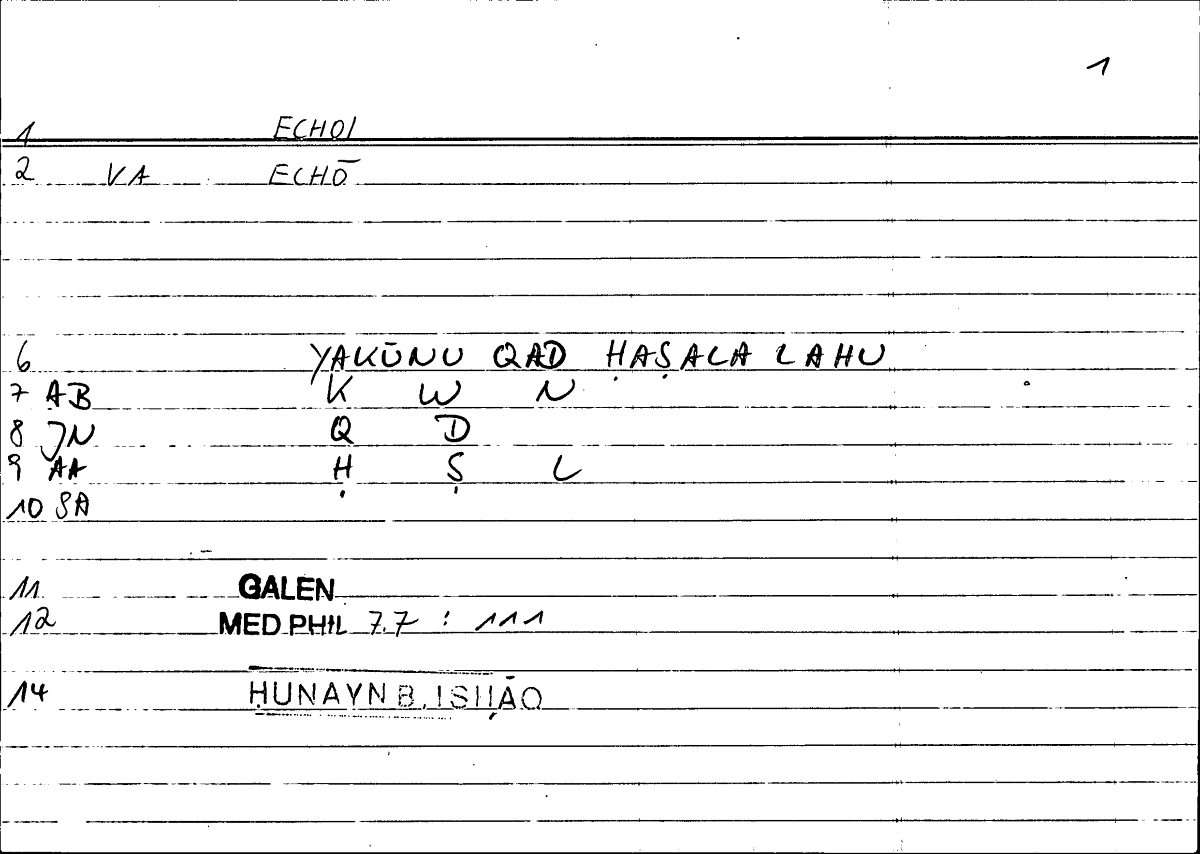 1
1 ECHOI
2 VA ECHŌ
6 YAKŪNU QAD ḤAṢALA LAHU
7 AB K W N
8 JN Q D
9 AA Ḥ Ṣ L
10 SA
11 GALEN
12 MED PHIL 7.7 : 111
14 ḤUNAYN B. ISḤĀQ